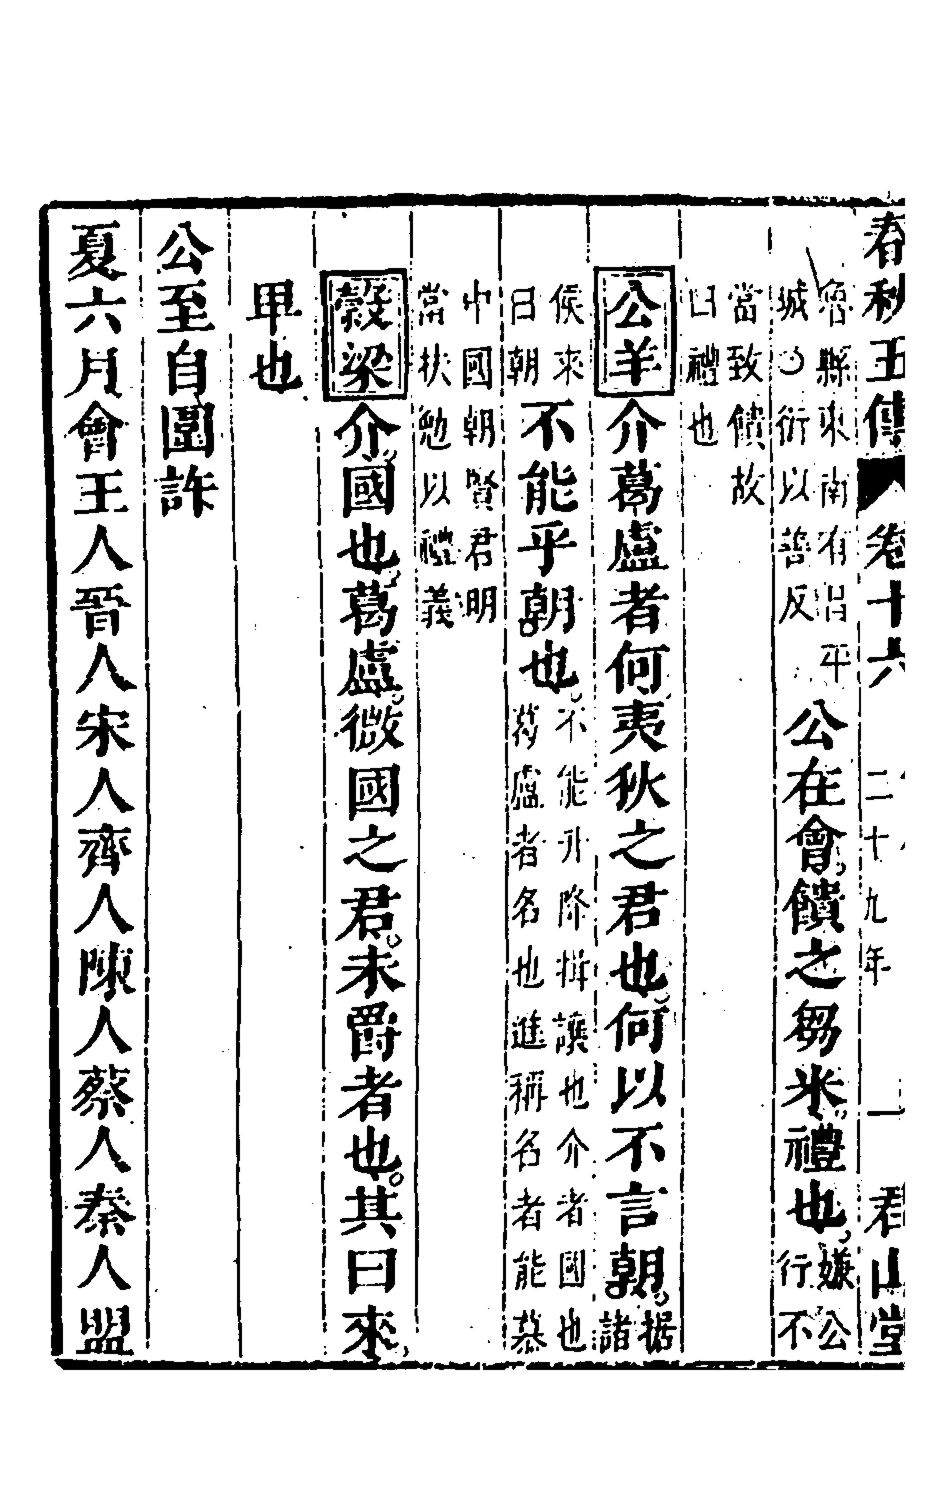 春秋五傳 卷十六 二十九年 一 君山堂
魯縣東南有昌平
城⺀衍以善反
公在會饋之芻米禮也
嫌公
行不
當致饋故
曰禮也
公羊 介葛盧者何夷狄之君也何以不言朝
据
諸
侯來
曰朝
不能乎朝也
不能升降揖讓也介者國也
葛盧者名也進稱名者能慕
中國朝賢君明
當扶勉以禮義
穀梁 介國也葛盧微國之君未爵者也其曰來
卑也
公至自圍許
夏六月會王人晉人宋人齊人陳人蔡人秦人盟